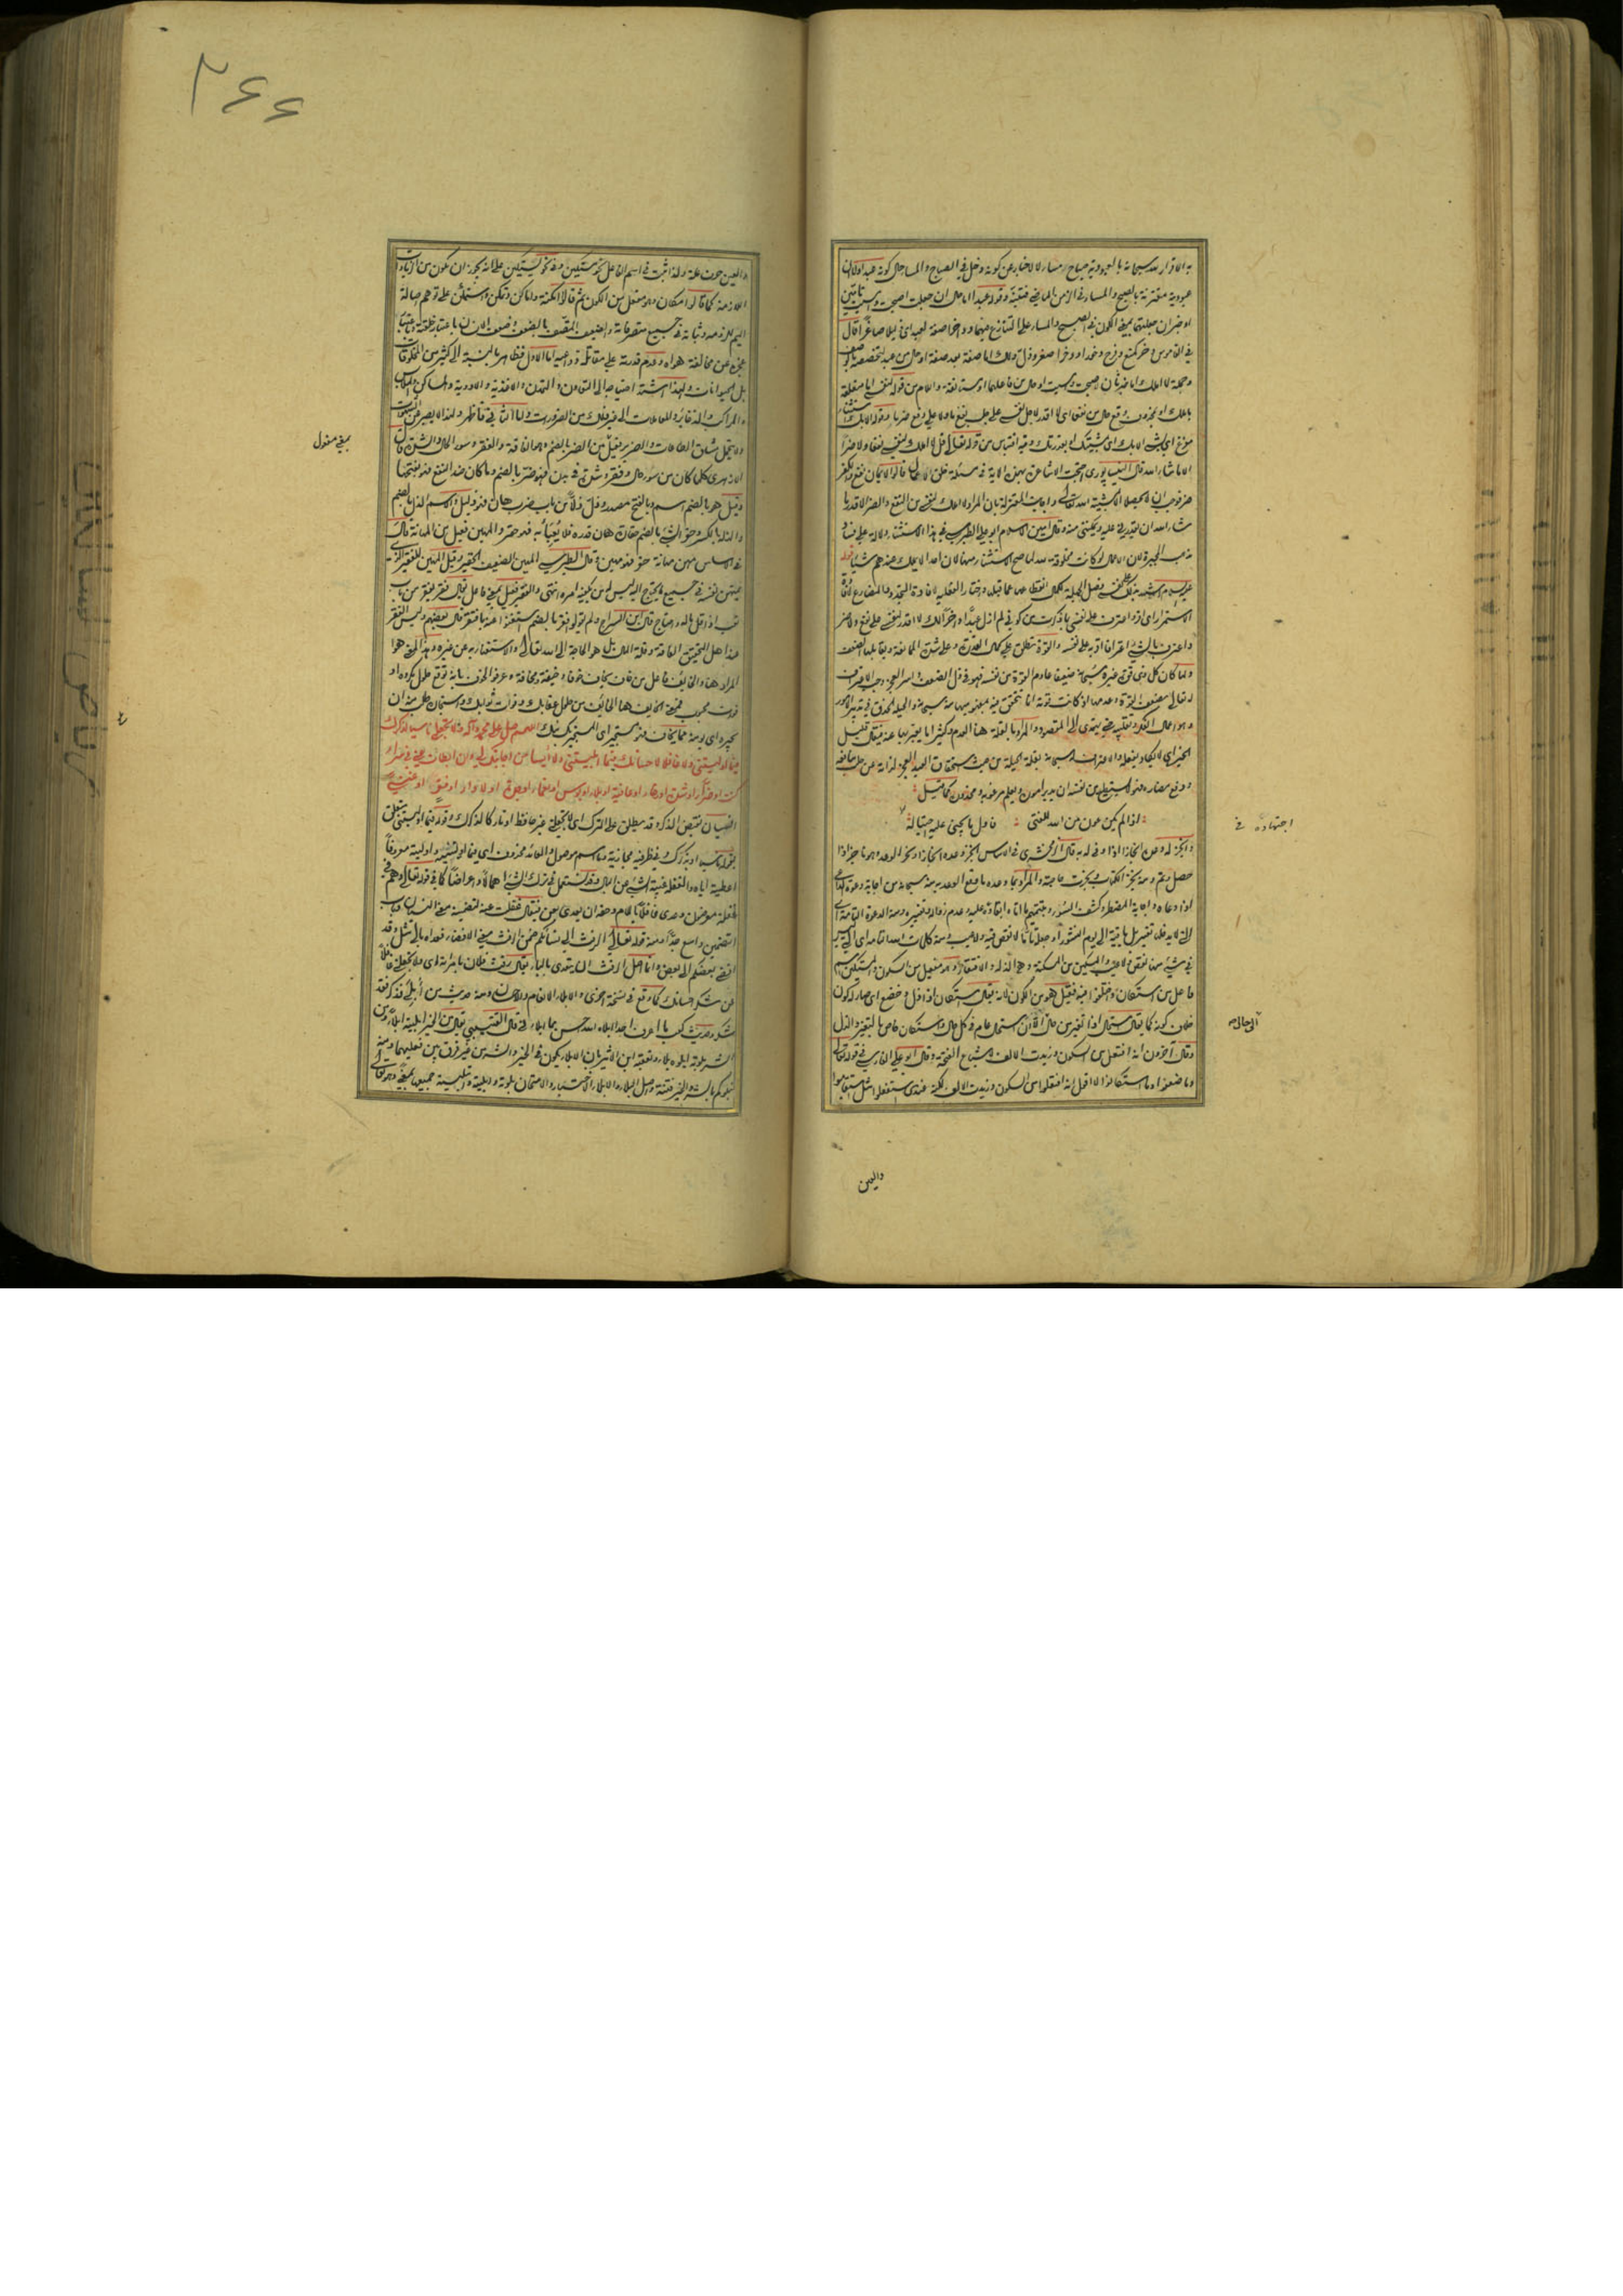 به الاقرار لله سبحانه بالعبودية صباح مساء لا الاخبار عن كونه دخل في الصباح والمساء حال كونه عبدا ولا ان
عبودية مقترنة بالصبح والمساء في الزمن الماضي
او خبران جعلتهما بمعنى الكون في الصبح والمساء على التنازع فيهما
في القاموس دخر كمنع وفرح دخرا ودخورا صغر وذل
وجملة لا املك اما خبر ثان لاصبحت وامسيت او حال من فاعلهما او مستانفة واللام من قوله لنفسي اما متعلقة
باملك او بمحذوف وقع حالا من نفعا اى لا اقدر لاجل نفسي على جلب نفع ما ولا على دفع ضر ما وقوله الا بك استثناء
مفرغ اى بشئ الا بك اى بمشيتك او بقدرتك وفيه اقتباس من قوله تعالى قل لا املك لنفسي نفعا ولا ضرا
الا ما شاء الله قال النيسابوري احتجت الاشاعرة بهذه الاية في مسئلة خلق الاعمال قالوا الايمان نفع والكفر
ضر فوجب ان لا يحصلا الا بمشية الله تعالى واجابت المعتزلة بان المراد لا املك لنفسي من النفع والضر الا قدر ما
شاء الله ان يقدرني عليه ويمكنني منه وقال امين الاسلام ابو علي الطبرسي في هذا الاستثناء دلالة على فساد
مذهب المجبرة لان الافعال لو كانت مخلوقة لله لما صح الاستثناء منها لان احدا لا يملك عندهم شيئا قوله
عليه السلام اشهد بذلك على نفسي فصل الجملة لكمال انقطاعها عما قبلها
الاستمرار اى اقر واعترف على نفسي بما ذكرت من كوني لم ازل عبدا داخرا لك لا اقدر لنفسي على نفع ولا ضر
واعترف بالشئ اعترافا اقر به على نفسه والقوة تطلق على كمال القدرة وعلى شدة الممانعة ويقابلها الضعف
ولما كان كل ذي قوة غيره سبحانه ضعيفا عادم القوة من نفسه فهو في ذل الضعف واسر العجز وجب الاعتراف
له تعالى بضعف القوة وعدمها اذ كانت قوته انما تتحقق فيه بمعونته سبحانه والحيلة الحذق في تدبير الامور
وهو اعمال الفكر وتقليبه حتى يهتدى الى المقصود والمراد بالقلة هنا العدم وكثيرا ما يعبر بها عنه فيقال قليل
الخير اى لا يكاد يفعله والاعتراف له سبحانه بقلة الحيلة من حيث استحقاق العبد العجز لذاته عن جلب منافعه
ودفع مضاره فهو لا يستطيع من نفسه ان يدبر امره ويعلم مرغوبه ومحذوره كما قيل
اذا لم يكن عون من الله للفتى ؞ فاول ما يجني عليه اجتهاده
وانجز له وعده انجازا اذا وفى له به قال الزمخشري في الاساس انجز وعده انجازا ونجز الوعد وهو ناجز اذا
حصل وتم ومنه نجز الكتاب ونجزت حاجته والمراد بما وعده ما وقع الوعد به منه سبحانه من اجابة دعوة الداعي
اذا دعاه واجابة المضطر وكشف السوء
التي لا يدخلها تغيير بل باقية الى يوم النشور او جعله تاما لا نقص فيه ولا عيب ومنه كلمات الله التامة اى التي ليس
في شئ منها نقص ولا عيب والمسكين من المسكنة وهي الذلة والافتقار وهو مفعيل من السكون والمستكين اسم
فاعل من استكان واختلفوا فيه فقيل هو من الكون لانه يقال استكان اذا ذل وخضع اى صار له كون
خلاف كونه كما يقال استحال اذا تغير من حال الى حال الا ان استحال عام في كل حال واستكان خاص بالتغير والذل
وقال آخرون انه افتعل من السكون وزيدت الالف لاشباع الفتحة وقال ابو علي الفارسي في قوله تعالى
وما ضعفوا وما استكانوا لا اقول انه افتعلوا من السكون وزيدت الالف ولكنه عندى استفعلوا مثل استقاموا
اجتهاده في
الى حال صح
والعين
٢٦٦
والعين حرف علة ولذا ثبت في اسم الفاعل نحو مستكين وفي نحو يستكين على انه يجوز ان يكون من الزيادات
اللازمة كما قالوا مكان وهو مفعل من الكون ثم قالوا امكنة واماكن وتمكن واستمكن على توهم اصالة
الميم للزومه وثباته في جميع متصرفاته والضعيف المتصف بالضعف
عجزه عن مخالفة هواه وعدم قدرته على مقاتلة دواعيه اما الاول فظاهر بالنسبة الى كثير من المخلوقات
بل الحيوانات ولهذا اشتد احتياجه الى التعاون والتمدن والاغذية والادوية والمساكن والملابس
والمراكب والذخائر والمعاملات الى غير ذلك من الضرورات واما الثاني فظاهر ولهذا لا يصبر عن الشهوات
ولا يتحمل مشاق الطاعات والضرير فعيل من الضر بالضم وهو الفاقة والفقر وسوء الحال والشدة قال
الازهري كلما كان من سوء حال وفقر وشدة في بدن فهو ضر بالضم وما كان ضد النفع فهو بفتحها
وقيل هو بالضم اسم وبالفتح مصدر وذل ذلا من باب ضرب هان فهو ذليل والاسم الذل بالضم
والذلة بالكسر وحقر الشئ بالضم حقارة هان قدره فلا يعبأ به فهو حقير والمهين فعيل من المهانة قال
في الاساس مهن مهانة حقر فهو مهين وقال الطبرسي المهين الضعيف الحقير وقيل المهين الفقير الذي
يمتهن نفسه في جميع ما يحتاج اليه ليس له من يكفيه امره انتهى والفقير فعيل بمعنى فاعل يقال فقر يفقر من باب
تعب اذا قل ماله واحتاج قال ابن السراج ولم يقولوا فقر بالضم استغنوا عنه بافتقر قال بعضهم وليس الفقر
عند اهل التحقيق الفاقة وقلة المال بل هو الحاجة الى الله تعالى والاستغناء به عن غيره وهذا المعنى هو
المراد هنا والخائف فاعل من خاف يخاف خوفا وخيفة ومخافة وعرفوا الخوف بانه توقع حلول مكروه او
فوت محبوب فمعنى الخائف هنا الخائف من حلول عقابك وفوات ثوابك واستجاره طلب منه ان
يجيره اى يؤمنه مما يخاف فهو مستجير اى المستجير بك اللهم صل على محمد وآله ولا تجعلني ناسيا لذكرك
فيما اوليتني ولا غافلا لاحسانك فيما ابليتني ولا آيسا من اجابتك لي وان ابطأت عني في سراء
كنت او ضراء او شدة او رخاء او عافية او بلاء او بؤس او نعماء او جدة او لأواء او فقر او غنى
النسيان نقيض الذكر وقد يطلق على الترك اى لا تجعلني غير حافظ او تاركا لذكرك وقوله فيما اوليتني متعلق
بقوله ناسيا او بذكرك وفي ظرفية مجازية وما اسم موصول والعائد محذوف اى فيما اوليتنيه واوليته معروفا
اعطيته اياه والغفلة غيبة الشئ عن البال وقد تستعمل في ترك الشئ اهمالا واعراضا كما في قوله تعالى وهم في
غفلة معرضون وعدى غافلا باللام وحقه ان يعدى بعن فيقال غفلت عنه لتضمينه معنى النسيان وباب
التضمين واسع جدا ومنه قوله تعالى الرفث الى نسائكم ضمن الرفث معنى الافضاء فعداه بالى مثل وقد
افضى بعضكم الى بعض وانما اصل الرفث ان يتعدى بالباء يقال رفث فلان بامرأته اى ولا تجعلني غافلا
عن شكر احسانك كما وقع في نسخة اخرى والابلاء الانعام والاحسان ومنه حديث من ابلي فذكر فقد
شكر وحديث كعب ما اعرف احدا ابلاه الله احسن مما ابلاني قال القتيبي يقال من الخير ابليته ابلاء ومن
الشر بلوته ابلوه بلاء وتعقبه ابن الاثير بان الابلاء يكون في الخير والشر من غير فرق بين فعليهما ومنه
نبلوكم بالشر والخير فتنة واصل البلاء والابلاء الاختبار والامتحان بلوته وابليته وابتليته جميعا بمعنى وهو تعالى
بمعنى مفعول